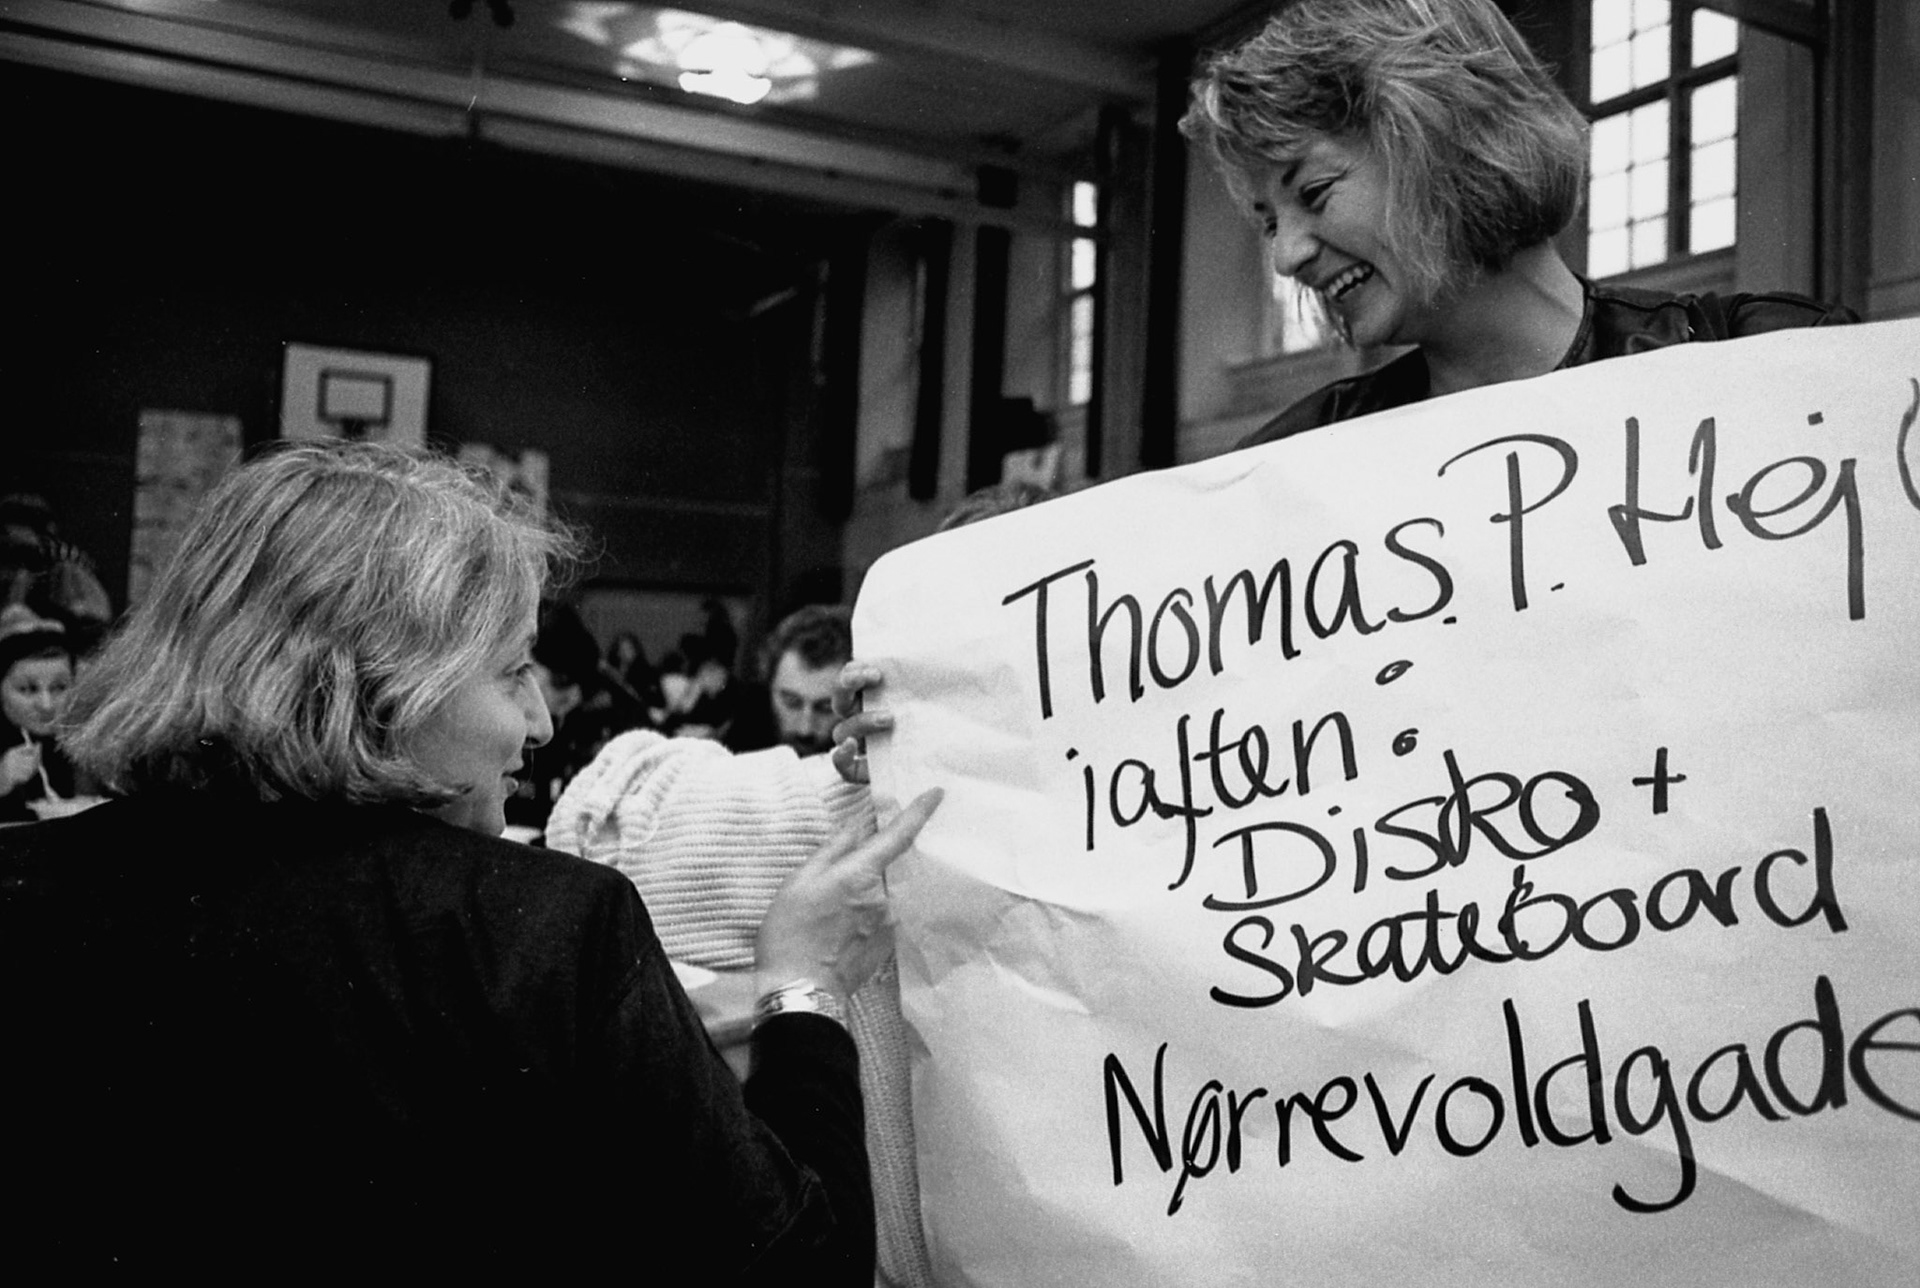 Thomas. P. Hej
iaften:
Disko +
Skateboard
Nørrevoldgade